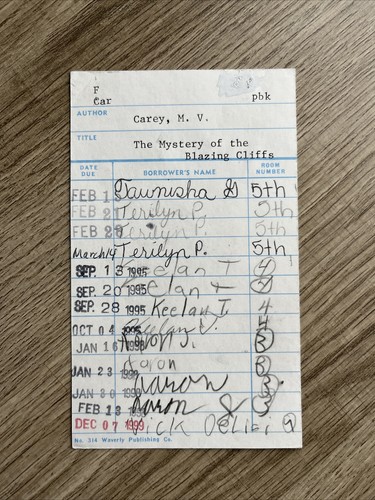 F
Car pbk
AUTHOR Carey, M. V.
TITLE The Mystery of the
Blazing Cliffs
DATE DUE BORROWER'S NAME ROOM NUMBER
FEB 1 Taunisha G 5th
FEB 2 Terilyn P. 5th
FEB 28 Terilyn P. 5th
March 14 Terilyn P. 5th
SEP. 13 1995 Keelan T 4
SEP. 20 1995 Keelan T 4
SEP. 28 1995 Keelan T. 4
OCT 04 1995 Keelan T. 4
JAN 16 1998 Aaron J. 3
JAN 23 1998 Aaron 3
JAN 30 1998 Aaron 3
FEB 13 Aaron 3
DEC 07 1999 Nick
No. 314 Waverly Publishing Co.